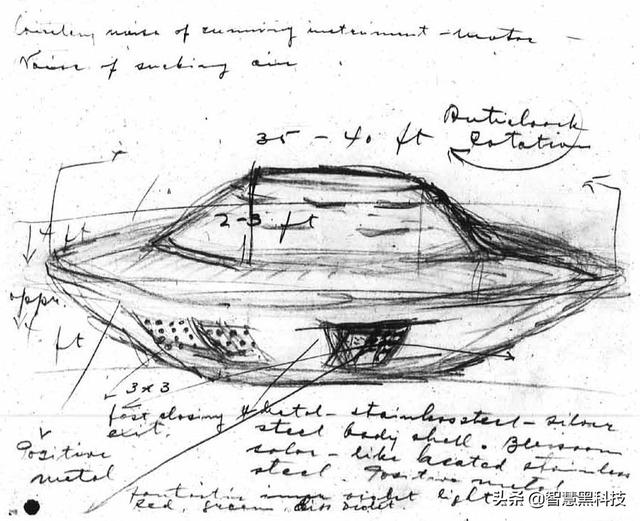 noise of running instrument - motor -
Noise of sucking air
35 - 40 ft
Anticlock
Rotation
4 ft
2-3 ft
appr.
4 ft
3x3
fast closing
exit.
Positive
metal
Metal - stainless steel - silver
steel body shell.
color - like heated stainless
steel. Positive metal
inner violet light
Red, green, violet
头条 @智慧黑科技